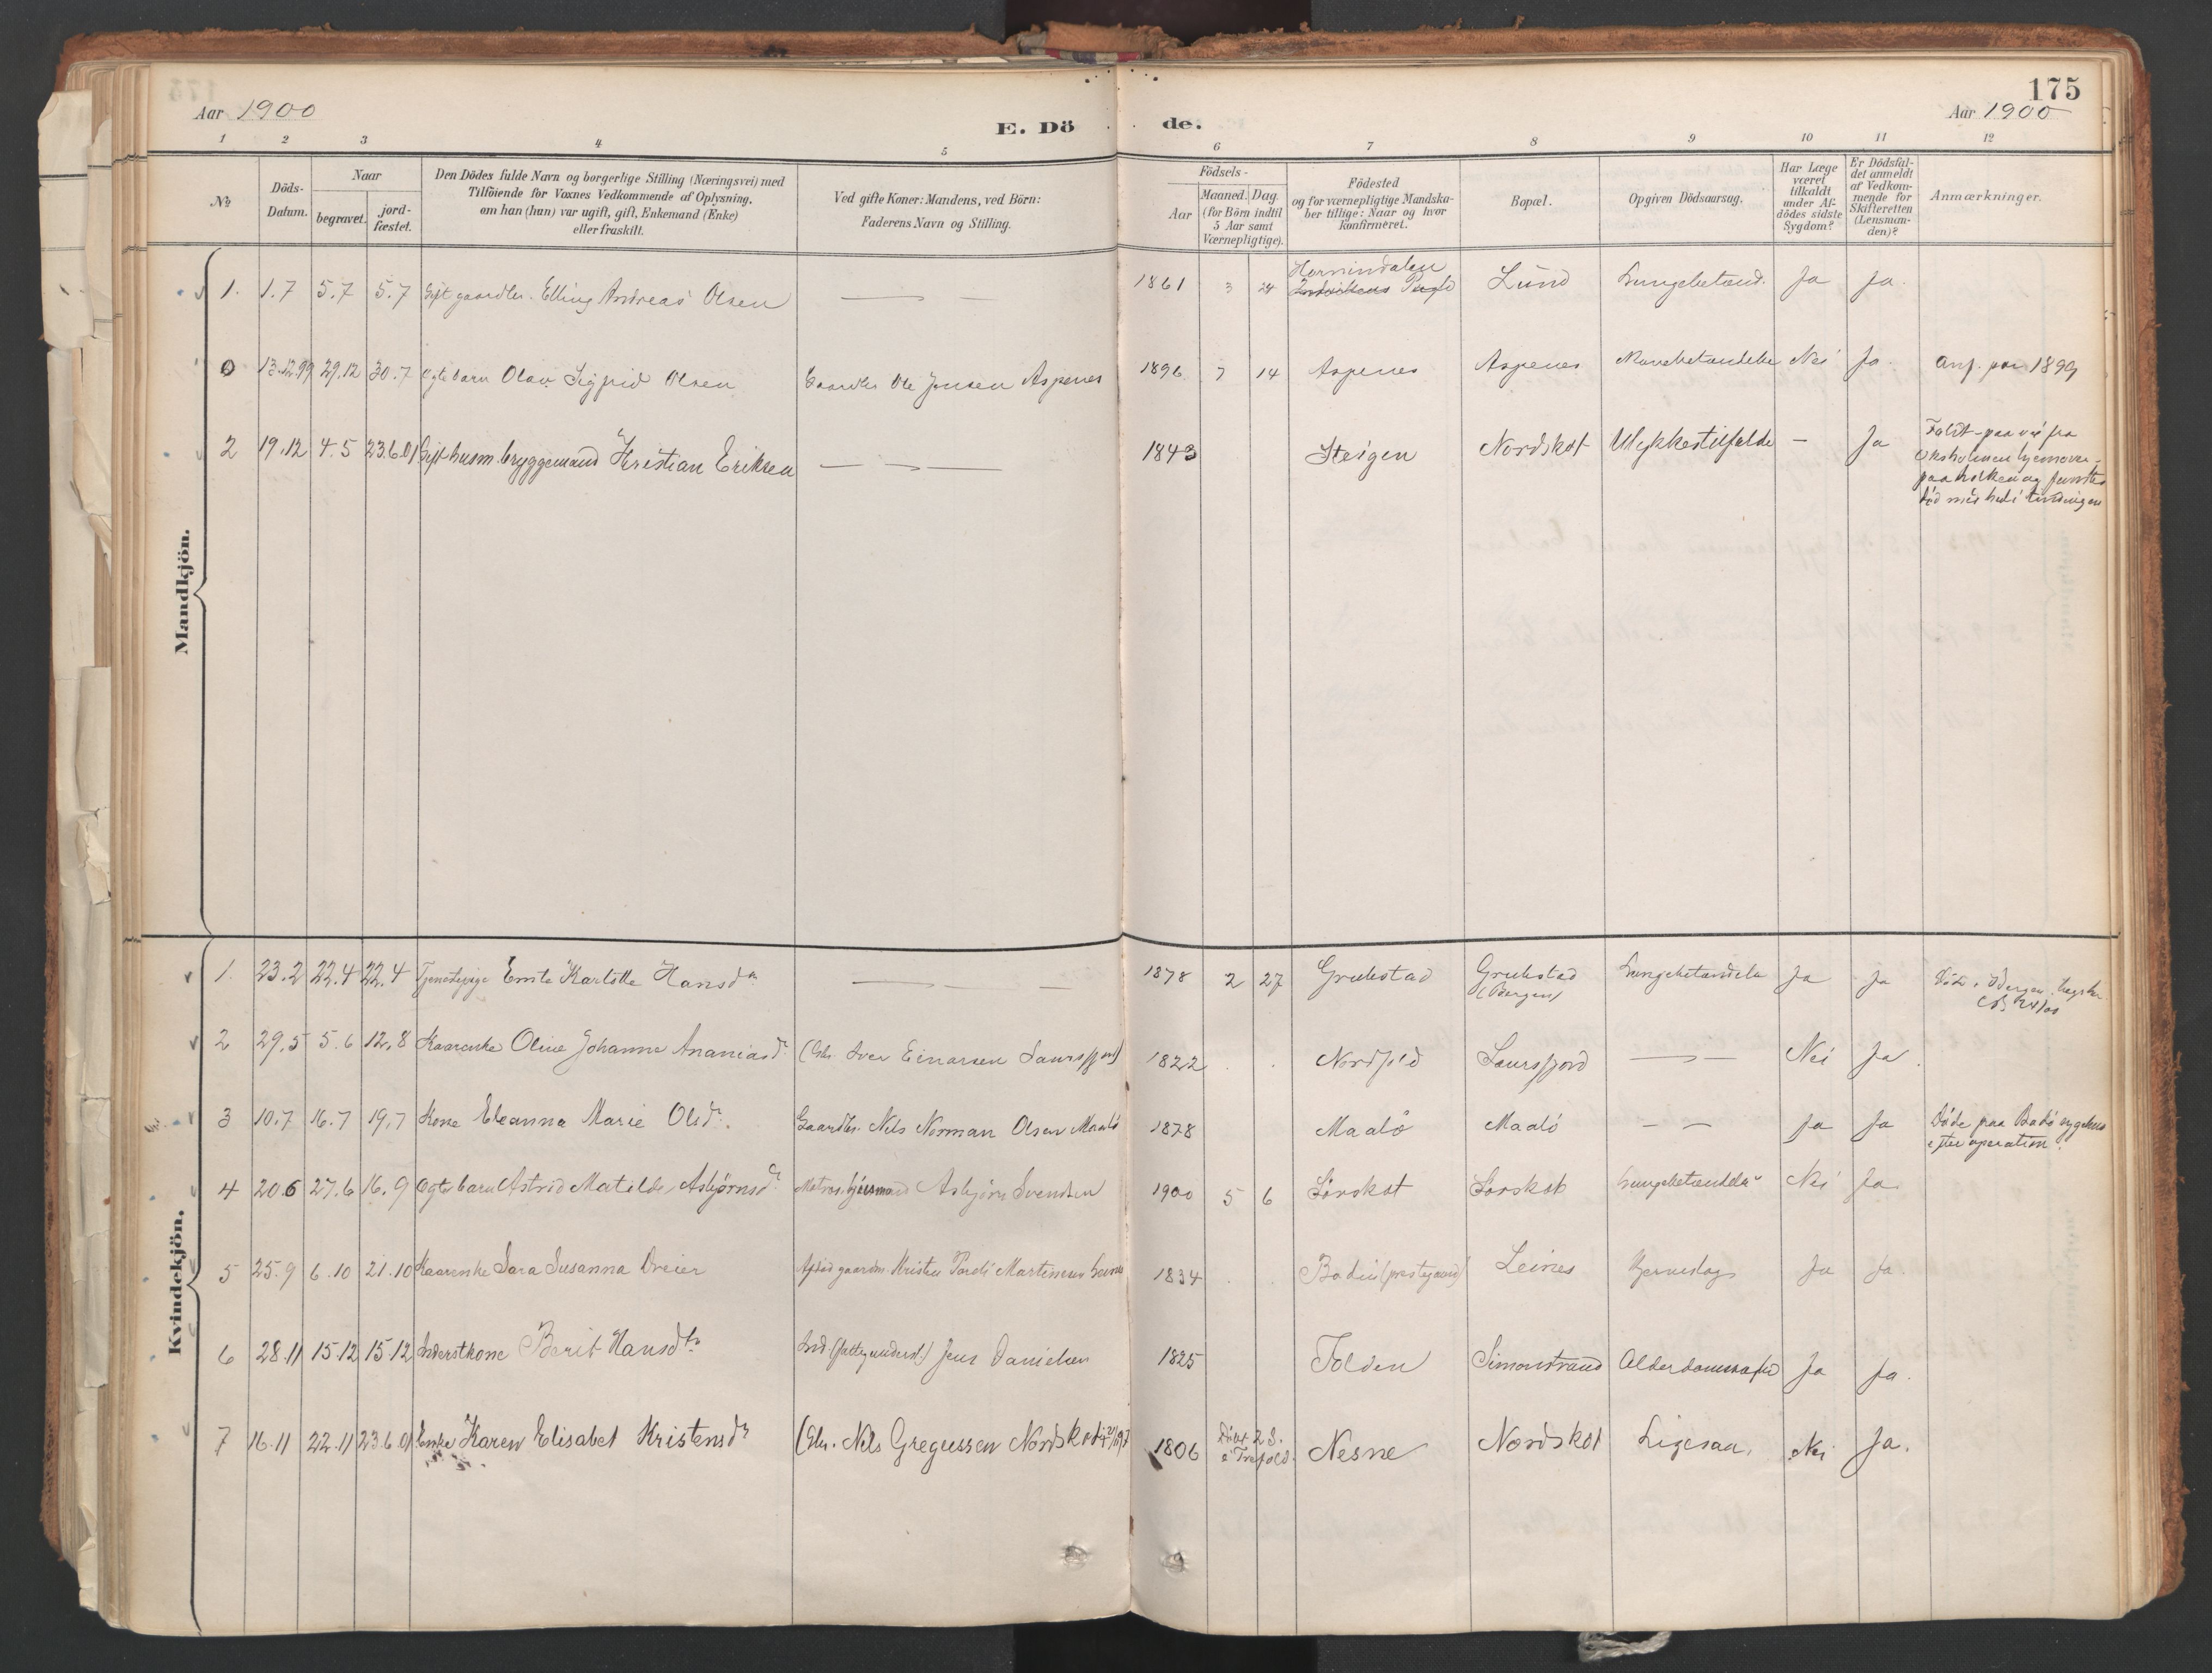 175
Aar 1900
E. Dö de.
Aar 1900
1 2 3 4 5 6 7 8 9 10 11 12
No
Döds-Datum.
Naar
begravet.
jord-fæstet.
Den Dödes fulde Navn og borgerlige Stilling (Næringsvei) med
Tilföiende for Voxnes Vedkommende af Oplysning,
om han (hun) var ugift, gift, Enkemand (Enke)
eller fraskilt.
Ved gifte Koner: Mandens, ved Börn:
Faderens Navn og Stilling.
Födsels-
Aar
Maaned. Dag.
(for Börn indtil
5 Aar samt
Værnepligtige).
Födested
og for værnepligtige Mandska-
ber tillige: Naar og hvor
konfirmeret.
Bopæl.
Opgiven Dödsaarsag.
Har Læge
været
tilkaldt
under Af-
dödes sidste
Sygdom?
Er Dödsfal-
det anmeldt
af Vedkom-
mende for
Skifteretten
(Lensman-
den)?
Anmærkninger.
Mandkjön.
1. 1.7 5.7 5.7 Gift gaardbr. Elling Andreas Olsen 1861 3 24 Hornindalen Lund Lungebetænd. Ja Ja.
0 13.12.99 29.12 30.7 Ægte barn Olav Sigfrid Olsen Gaardbr Ole Jensen Aspenes 1896 7 14 Aspenes Aspenes Mavebetændelse Nei Ja. Anf. for 1899
2 19.12 4.5 23.6.01 Gift husm. bryggemand Kristian Eriksen 1843 Steigen Nordskot Ulykkestilfælde - Ja Faldt paa vei fra
Oksholmen hjemover
paa holken og funden
död
Kvindekjön.
1. 23.2 22.4 22.4 Tjenestepige Emte Karlotte Hansdr. 1878 2 27 Grubstad Grubstad
(Bergen) Lungebetændelse Ja Ja Död i Bergen
2 29.5 5.6 12.8 Kaarenke Oline Johanna Ananiasdr. (Gbr. Iver Einarsen Laursfjord) 1822 Nordfold Laursfjord Nei Ja.
3 10.7 16.7 19.7 Kone Eleanna Marie Olsdr. Gaardbr. Nils Norman Olsen Maalö 1878 Maalö Maalö Ja Ja Döde paa Bodö sygehus
efter operation.
4 20.6 27.6 16.9 Ægte barn Astrid Matilde Asbjörnsdr. Asbjörn Svendsen 1900 5 6 Sörskot Sörskot Lungebetændelse Nei Ja
5 25.9 6.10 21.10 Kaarenke Sara Susanna Dreier Martinsen Leines 1834 Bodin (prestegaard) Leines Hjerneslag Ja Ja.
6 28.11 15.12 15.12 Inderstkone Berit Hansdtr Ind. (fattigunderst.) Jens Danielsen 1825 Folden Simonstrand Alderdomssvaghed Ja Ja.
7 16.11 22.11 23.6.01 Enke Karen Elisabet Kristensdr (Gbr. Nils Gregussen Nordskot 1806 Döbt 2 S.
Nesne Nordskot Ligesaa. Nei Ja.